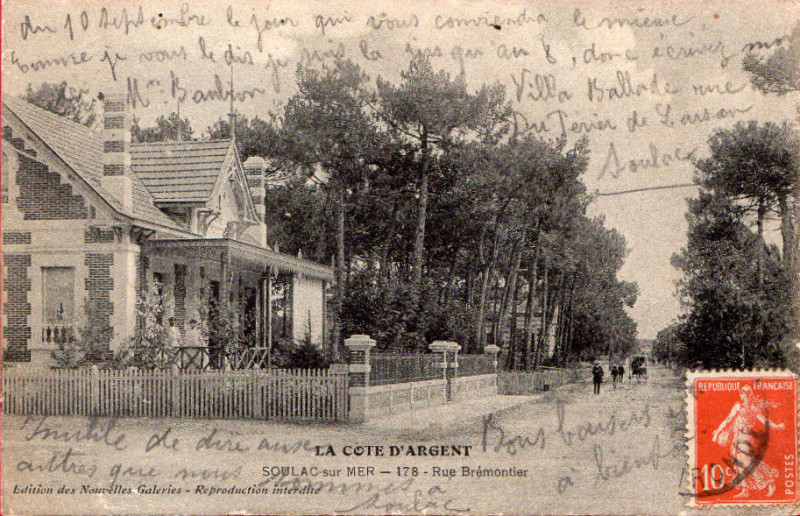 du 10 septembre le jour qui vous conviendra le mieux,
je vous le dis je suis la jusqu'au 8, donc écrivez moi
Mme
Villa Ballade rue
Du Terrier de
Soulac
Inutile de dire aux
autres que nous
sommes à
Soulac
Bons baisers
à bientôt
LA COTE D'ARGENT
SOULAC-sur MER — 178 - Rue Brémontier
Edition des Nouvelles Galeries - Reproduction interdite
REPUBLIQUE FRANÇAISE
10c
POSTES